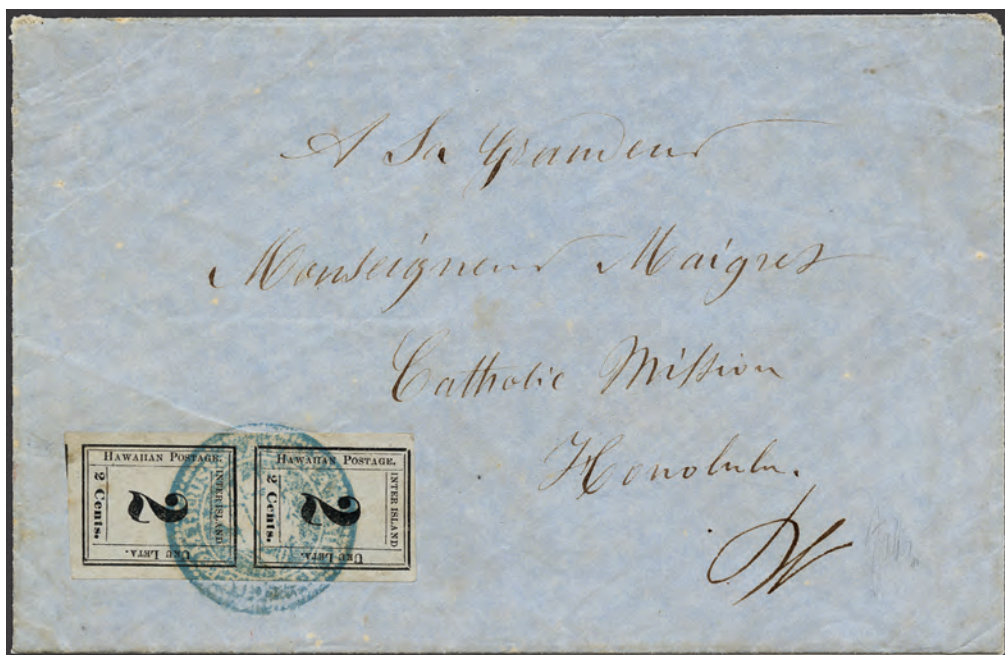 A Sa Grandeur
Monseigneur Maigret
Catholic Mission
Honolulu.
HAWAIIAN POSTAGE.
INTER ISLAND
UKU LETA.
2 Cents.
2
HAWAIIAN POSTAGE.
INTER ISLAND
UKU LETA.
2 Cents.
2